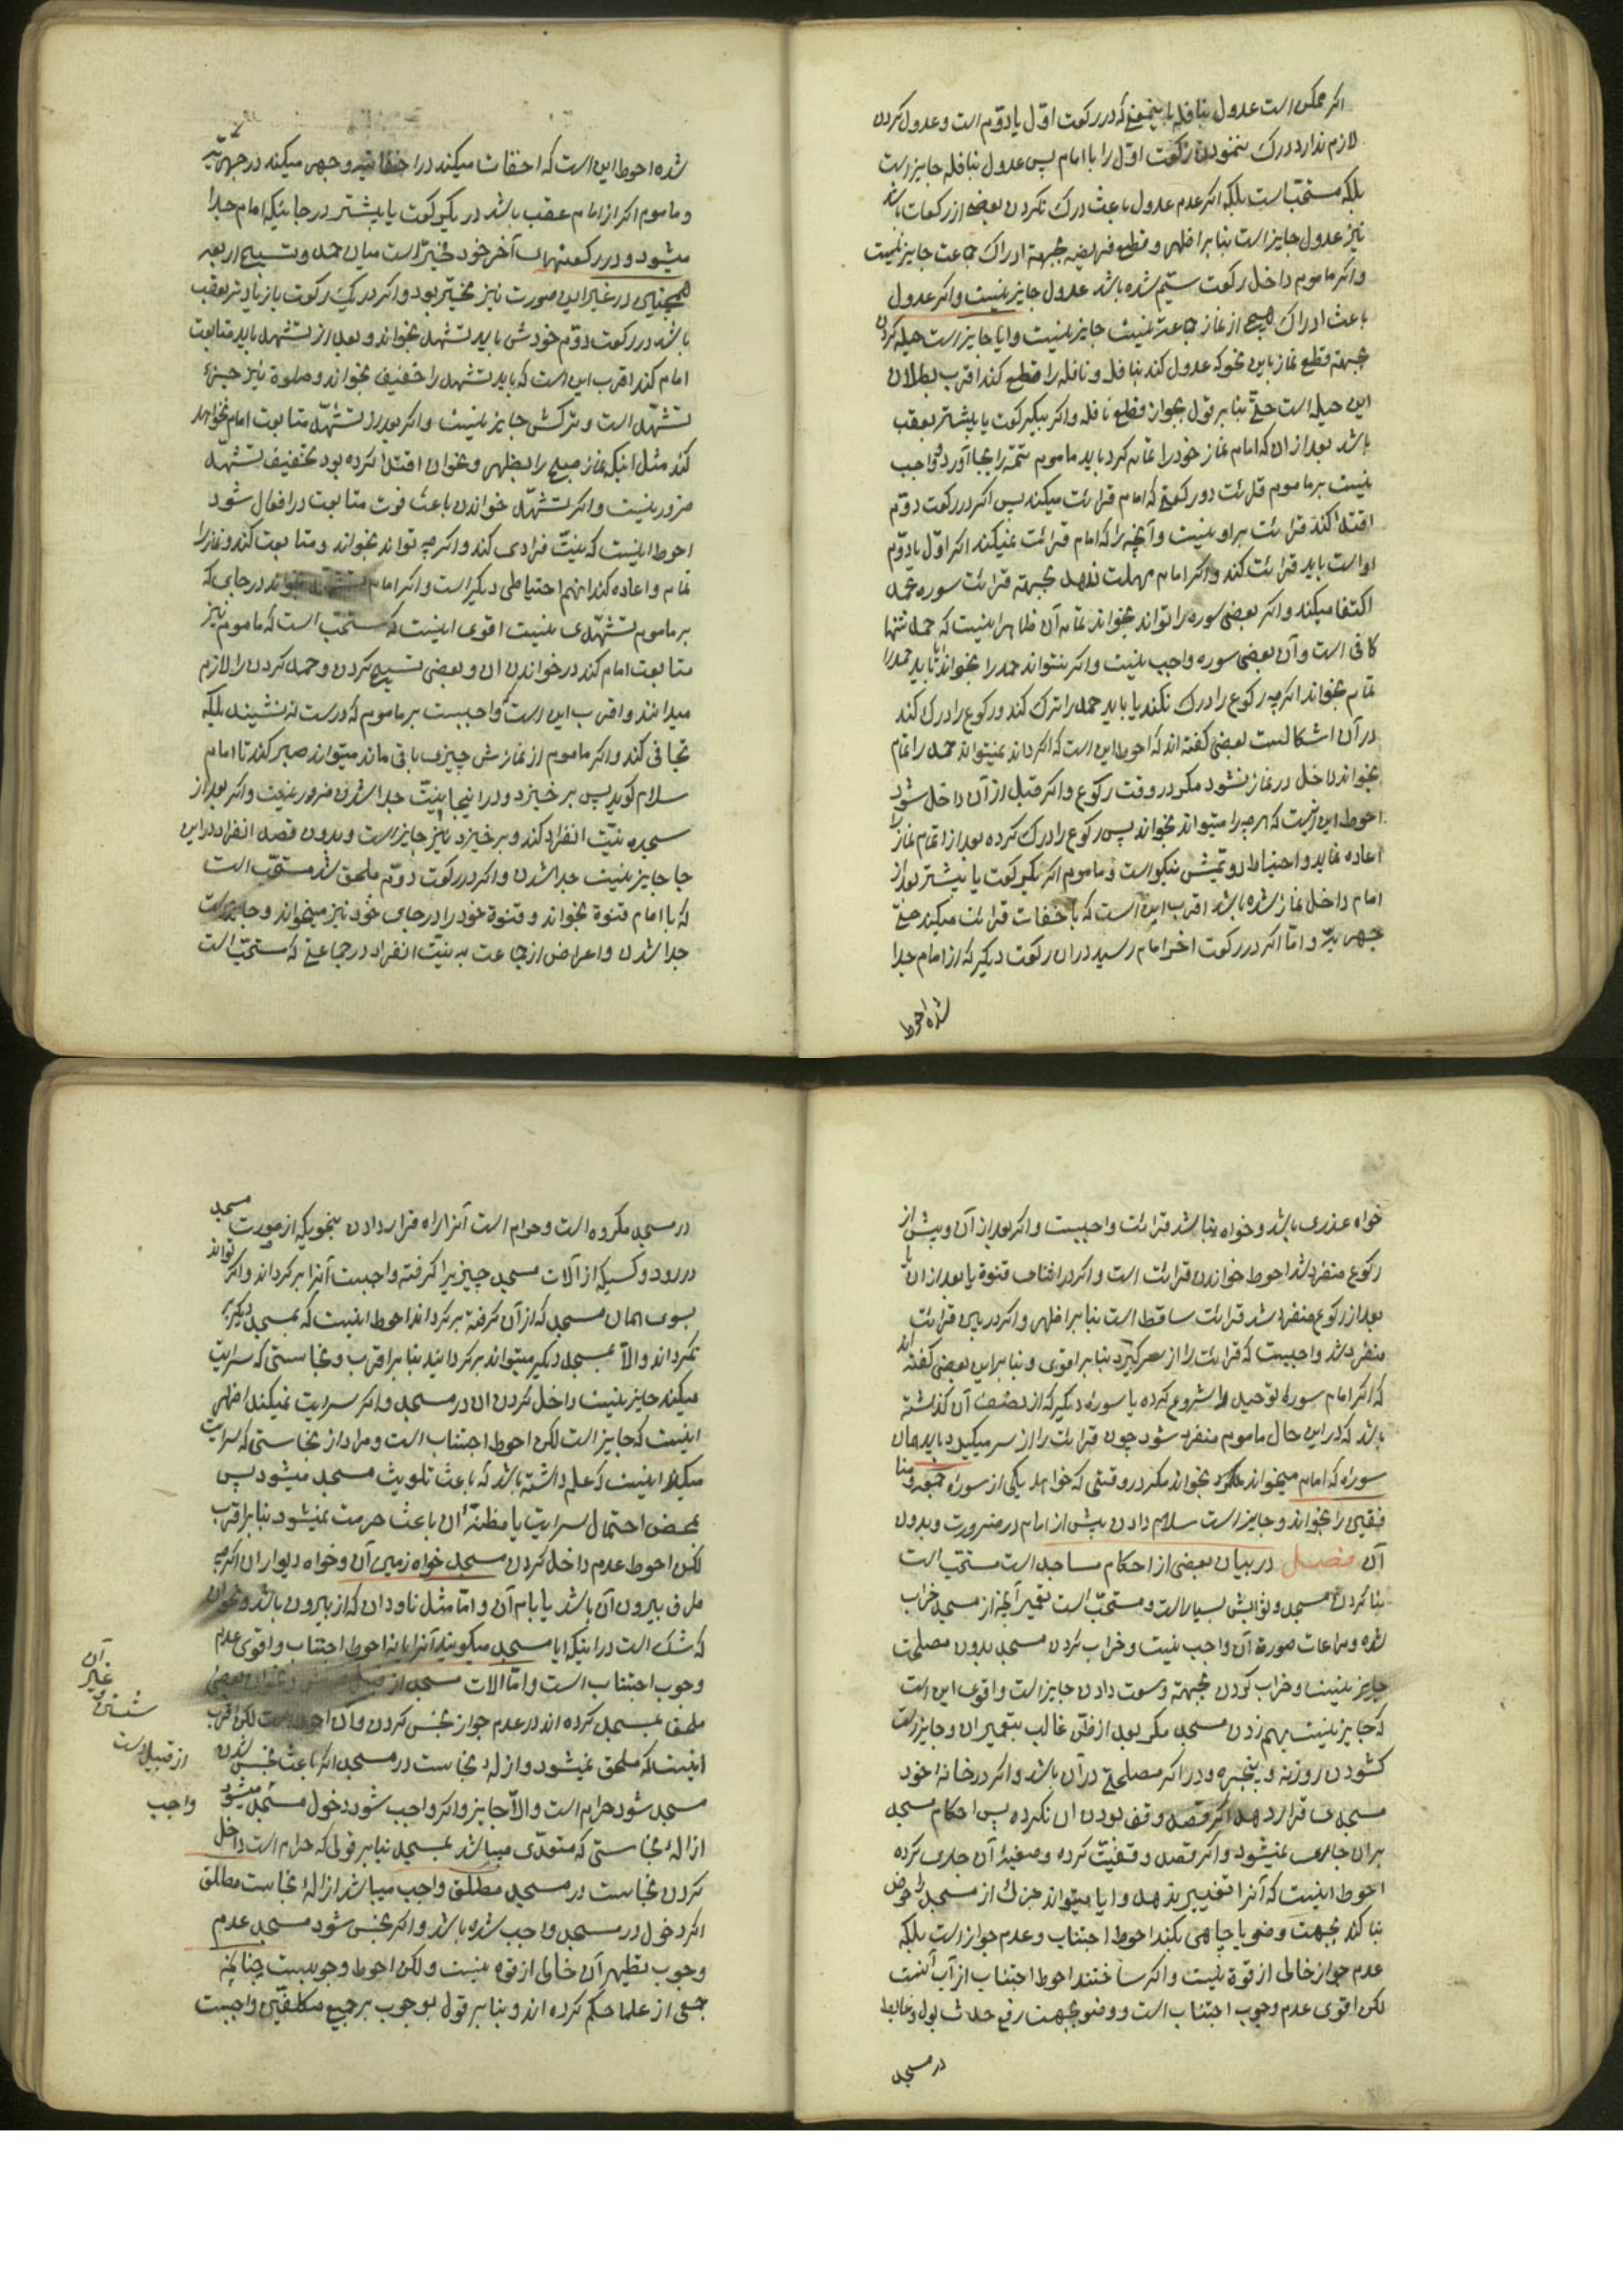 اکر ممکن است عدول بنافله باینمعنی که در رکعت اول یا دوم است و عدول کردن
لازم ندارد درک ننمودن رکعت اول را با امام پس عدول بنافله جایز است
بلکه مستحبّ است بلکه اکر عدم عدول باعث درک نکردن بعضی از رکعات باشد
نیز عدول جایز است بنابر اظهر و قطع فریضه بجهة ادراک جماعت جایز نیست
و اکر ماموم داخل رکعت سیّم شده باشد عدول جایز نیست و اکر عدول
باعث ادراک هیچ از نماز جماعت نیست جایز نیست و ایا جایز است حیله کردن
بجهة قطع نماز باین نحو که عدول کند بنافله و نافله را قطع کند اقرب بطلان
این حیله است حتّی بنابر قول بجواز قطع نافله و اکر بیکرکعت یا بیشتر بعقب
باشد بعد از ان که امام نماز خود را تمام کرد باید ماموم تتمّه را بجا آورد و واجب
نیست بر ماموم قرائت دو رکعتی که امام قرائت میکند پس اکر در رکعت دوّم
اقتدا کند قرائت بر او نیست و آنچه را که امام قرائت نمیکند اکر اوّل یا دوّم
او است باید قرائت کند و اکر امام مهلت ندهد بجهة قرائت سوره بحمد
اکتفا میکند و اکر بعضی سوره را تواند بخواند تمام آن ظاهر اینست که حمد تنها
کافی است و آن بعضی سوره واجب نیست و اکر نتواند حمد را بخواند ایا باید حمد را
تمام بخواند اکرچه رکوع را درک نکند یا باید حمد را ترک کند و رکوع را درک کند
در آن اشکالست بعضی کفته اند که احوط این است که اکر داند نمیتواند حمد را تمام
بخواند داخل در نماز نشود مکر در وقت رکوع و اکر قبل از آن داخل شود
احوط این است که هرچه را میتواند بخواند پس رکوع را درک کرده بعد از اتمام نماز را
اعاده نماید و احتیاط دویمش نیکو است و ماموم اکر یکرکعت یا بیشتر بعد از
امام داخل نماز شده باشد اقرب این است که باخفات قرائت میکند حتی
جهریّه و امّا اکر در رکعت اخر امام رسید در ان رکعت دیکر که از امام جدا
شده احوط
شده احوط این است که اخفات میکند در اخفاتیّه و جهر میکند در جهریّه
و ماموم اکر از امام عقب باشد در یکرکعت یا بیشتر در جائیکه امام جدا
میشود و در رکعتهای آخر خود مخیّر است میان حمد و تسبیح اربعه
همچنانی در غیر این صورت نیز مخیّر بود و اکر در یک رکعت یا زیادتر بعقب
باشد در رکعت دوّم خودش باید تشهد بخواند و بعد از تشهد باید متابعت
امام کند اقرب این است که باید تشهد را خفیف بخواند و صلوة نیز جزء
تشهّد است و ترکش جایز نیست و اکر بعد از تشهّد متابعت امام نخواهد
کند مثل اینکه نماز صبح را بظهر و نحو ان اقتدا کرده بود تخفیف تشهد
ضرور نیست و اکر تشهّد خواندن باعث فوت متابعت در افعال شود
احوط اینست که نیّت فرادی کند و اکرچه تواند نخواند و متابعت کند و نماز را
تمام و اعاده کند اینهم احتیاطی دیکر است و اکر امام تشهد بخواند در جای که
بر ماموم تشهّدی نیست اقوی اینست که مستحبّ است که ماموم نیز
متابعت امام کند در خواندن ان و بعضی تسبیح کردن و حمد کردن را لازم
میدانند و اقرب این است که واجبست بر ماموم که درست ننشیند بلکه
تجافی کند و اکر ماموم از نمازش چیزی باقی ماند میتواند صبر کند تا امام
سلام کوید پس بر خیزد و در اینجا نیّت جدا شدن ضرور نیست و اکر بعد از
سجده نیّت انفراد کند و برخیزد نیز جایز است و بدون قصد انفراد در این
جا جایز نیست جدا شدن و اکر در رکعت دوّم ملحق شد مستحبّ است
که با امام قنوة بخواند و قنوة خود را در جای خود نیز میخواند و جایز است
جدا شدن و اعراض از جماعت به نیّت انفراد در جماعتی که مستحبّ است
خواه عذری باشد و خواه نباشد قرائت واجبست و اکر بعد از آن و پیش از
رکوع منفرد شد احوط خواندن قرائت است و اکر در اثنای قنوة یا بعد از ان یا
بعد از رکوع منفرد شد قرائت ساقط است بنابر اظهر و اکر در بین قرائت
منفرد شد واجبست که قرائت را از سر کیرد بنابر اقوی و بنابر این بعضی کفته اند
که اکر امام سورهٔ توحید را شروع کرده یا سوره دیکر که از نصف آن کذشته
باشد که در این حال ماموم منفرد شود چون قرائت را از سر میکیرد باید همان
سوره که امام میخواند بخواند مکر در وقتی که خواهد یکی از سوره جمعه و منا
فقین را بخواند و جایز است سلام دادن پیش از امام در ضرورت و بدون
آن فصل در بیان بعضی از احکام مساجد است مستحبّ است
بنا کردن مسجد و ثوابش بسیار است و مستحبّ است تعمیر آنچه از مسجد خراب
شده و مراعات صورة آن واجب نیست و خراب کردن مسجد بدون مصلحت
جایز نیست و خراب کردن بجهة وسعت دادن جایز است و اقوی این است
که جایز نیست بهم زدن مسجد مکر بعد از ظنّ غالب بتعمیر ان و جایز است
کشودن روزنه و پنجره و در اکر مصلحتی در آن باشد و اکر در خانهٔ خود
مسجدی قرار دهد اکر قصد وقف بودن ان نکرده پس احکام مسجد
بر ان جاری نمیشود و اکر قصد وقفیّت کرده و صیغهٔ آن جاری کرده
احوط اینست که آنرا تغییر ندهد و ایا میتواند جزئی از مسجد را حوض
بنا کند بجهت وضو یا چاهی بکند احوط اجتناب و عدم جواز است بلکه
عدم جواز خالی از قوة نیست و اکر ساختند احوط اجتناب از آب آنست
لکن اقوی عدم وجوب اجتناب است و وضو بجهت رفع حدث بول و غایط
در مسجد
در مسجد مکروه است و حرام است آنرا راه قرار دادن بنحویکه از صورت مسجد
در رود و کسیکه از آلات مسجد چیزیرا کرفته واجبست آنرا بر کرداند و اکر تواند
بسوی همان مسجد که از آن کرفته برکرداند احوط اینست که بمسجد دیکر
نکرداند و الّا بمسجد دیکر میتواند برکردانید بنابر اقرب و نجاستی که سرایت
میکند جایز نیست داخل کردن ان در مسجد و اکر سرایت نمیکند اظهر
اینست که جایز است لکن احوط اجتناب است و مراد از نجاستی که سرایت
میکند اینست که علم داشته باشد که باعث تلویث مسجد میشود پس
بمحض احتمال سرایت یا مظنّه ان باعث حرمت نمیشود بنابر اقرب
لکن احوط عدم داخل کردن مسجد خواه زمین آن و خواه دیوار ان اکرچه
طرف بیرون آن باشد یا بام آن و امّا مثل ناودان که از بیرون باشد و نحو ان
که شک است در اینکه ایا مسجد میکویند آنرا یا نه احوط اجتناب و اقوی عدم
وجوب اجتناب است و امّا الات مسجد از قبیل
ملحق بمسجد کرده اند در عدم جواز نجس کردن و ان احوط است لکن اقرب
اینست که ملحق نمیشود و ازاله نجاست در مسجد اکر باعث نجس شدن
مسجد شود حرام است و الّا جایز و اکر واجب شود دخول مسجد میشود
ازالهٔ نجاستی که متعدّی میباشد بمسجد بنابر قولی که حرام است داخل
کردن نجاست در مسجد مطلق واجب میباشد ازالهٔ نجاست مطلق
اکر دخول در مسجد واجب شده باشد و اکر نجس شود مسجد عدم
وجوب تطهیر آن خالی از قوه نیست و لکن احوط وجوبست چنانچه
جمعی از علما حکم کرده اند و بنابر قول بوجوب بر جمیع مکلفین واجبست
آن
غیر
از قبیل است
واجب